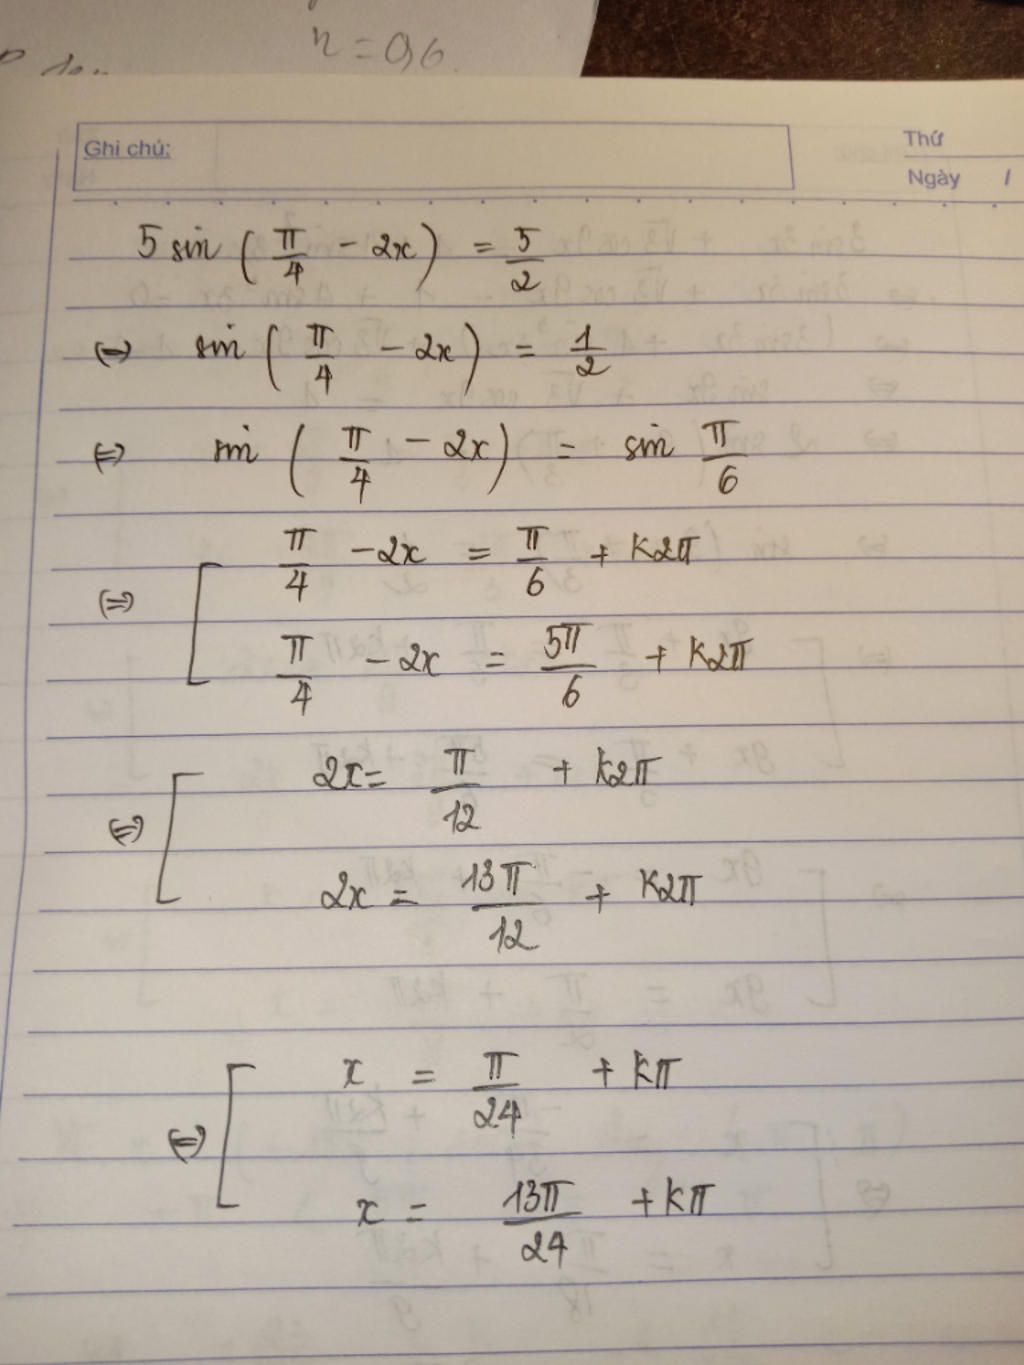 n = 0,6
Ghi chú:
Thứ
Ngày /
5 sin (π/4 − 2x) = 5/2
⇔ sin (π/4 − 2x) = 1/2
⇔ sin (π/4 − 2x) = sin π/6
⇔ [ π/4 − 2x = π/6 + k2π
π/4 − 2x = 5π/6 + k2π
⇔ [ 2x = π/12 + k2π
2x = 13π/12 + k2π
⇔ [ x = π/24 + kπ
x = 13π/24 + kπ